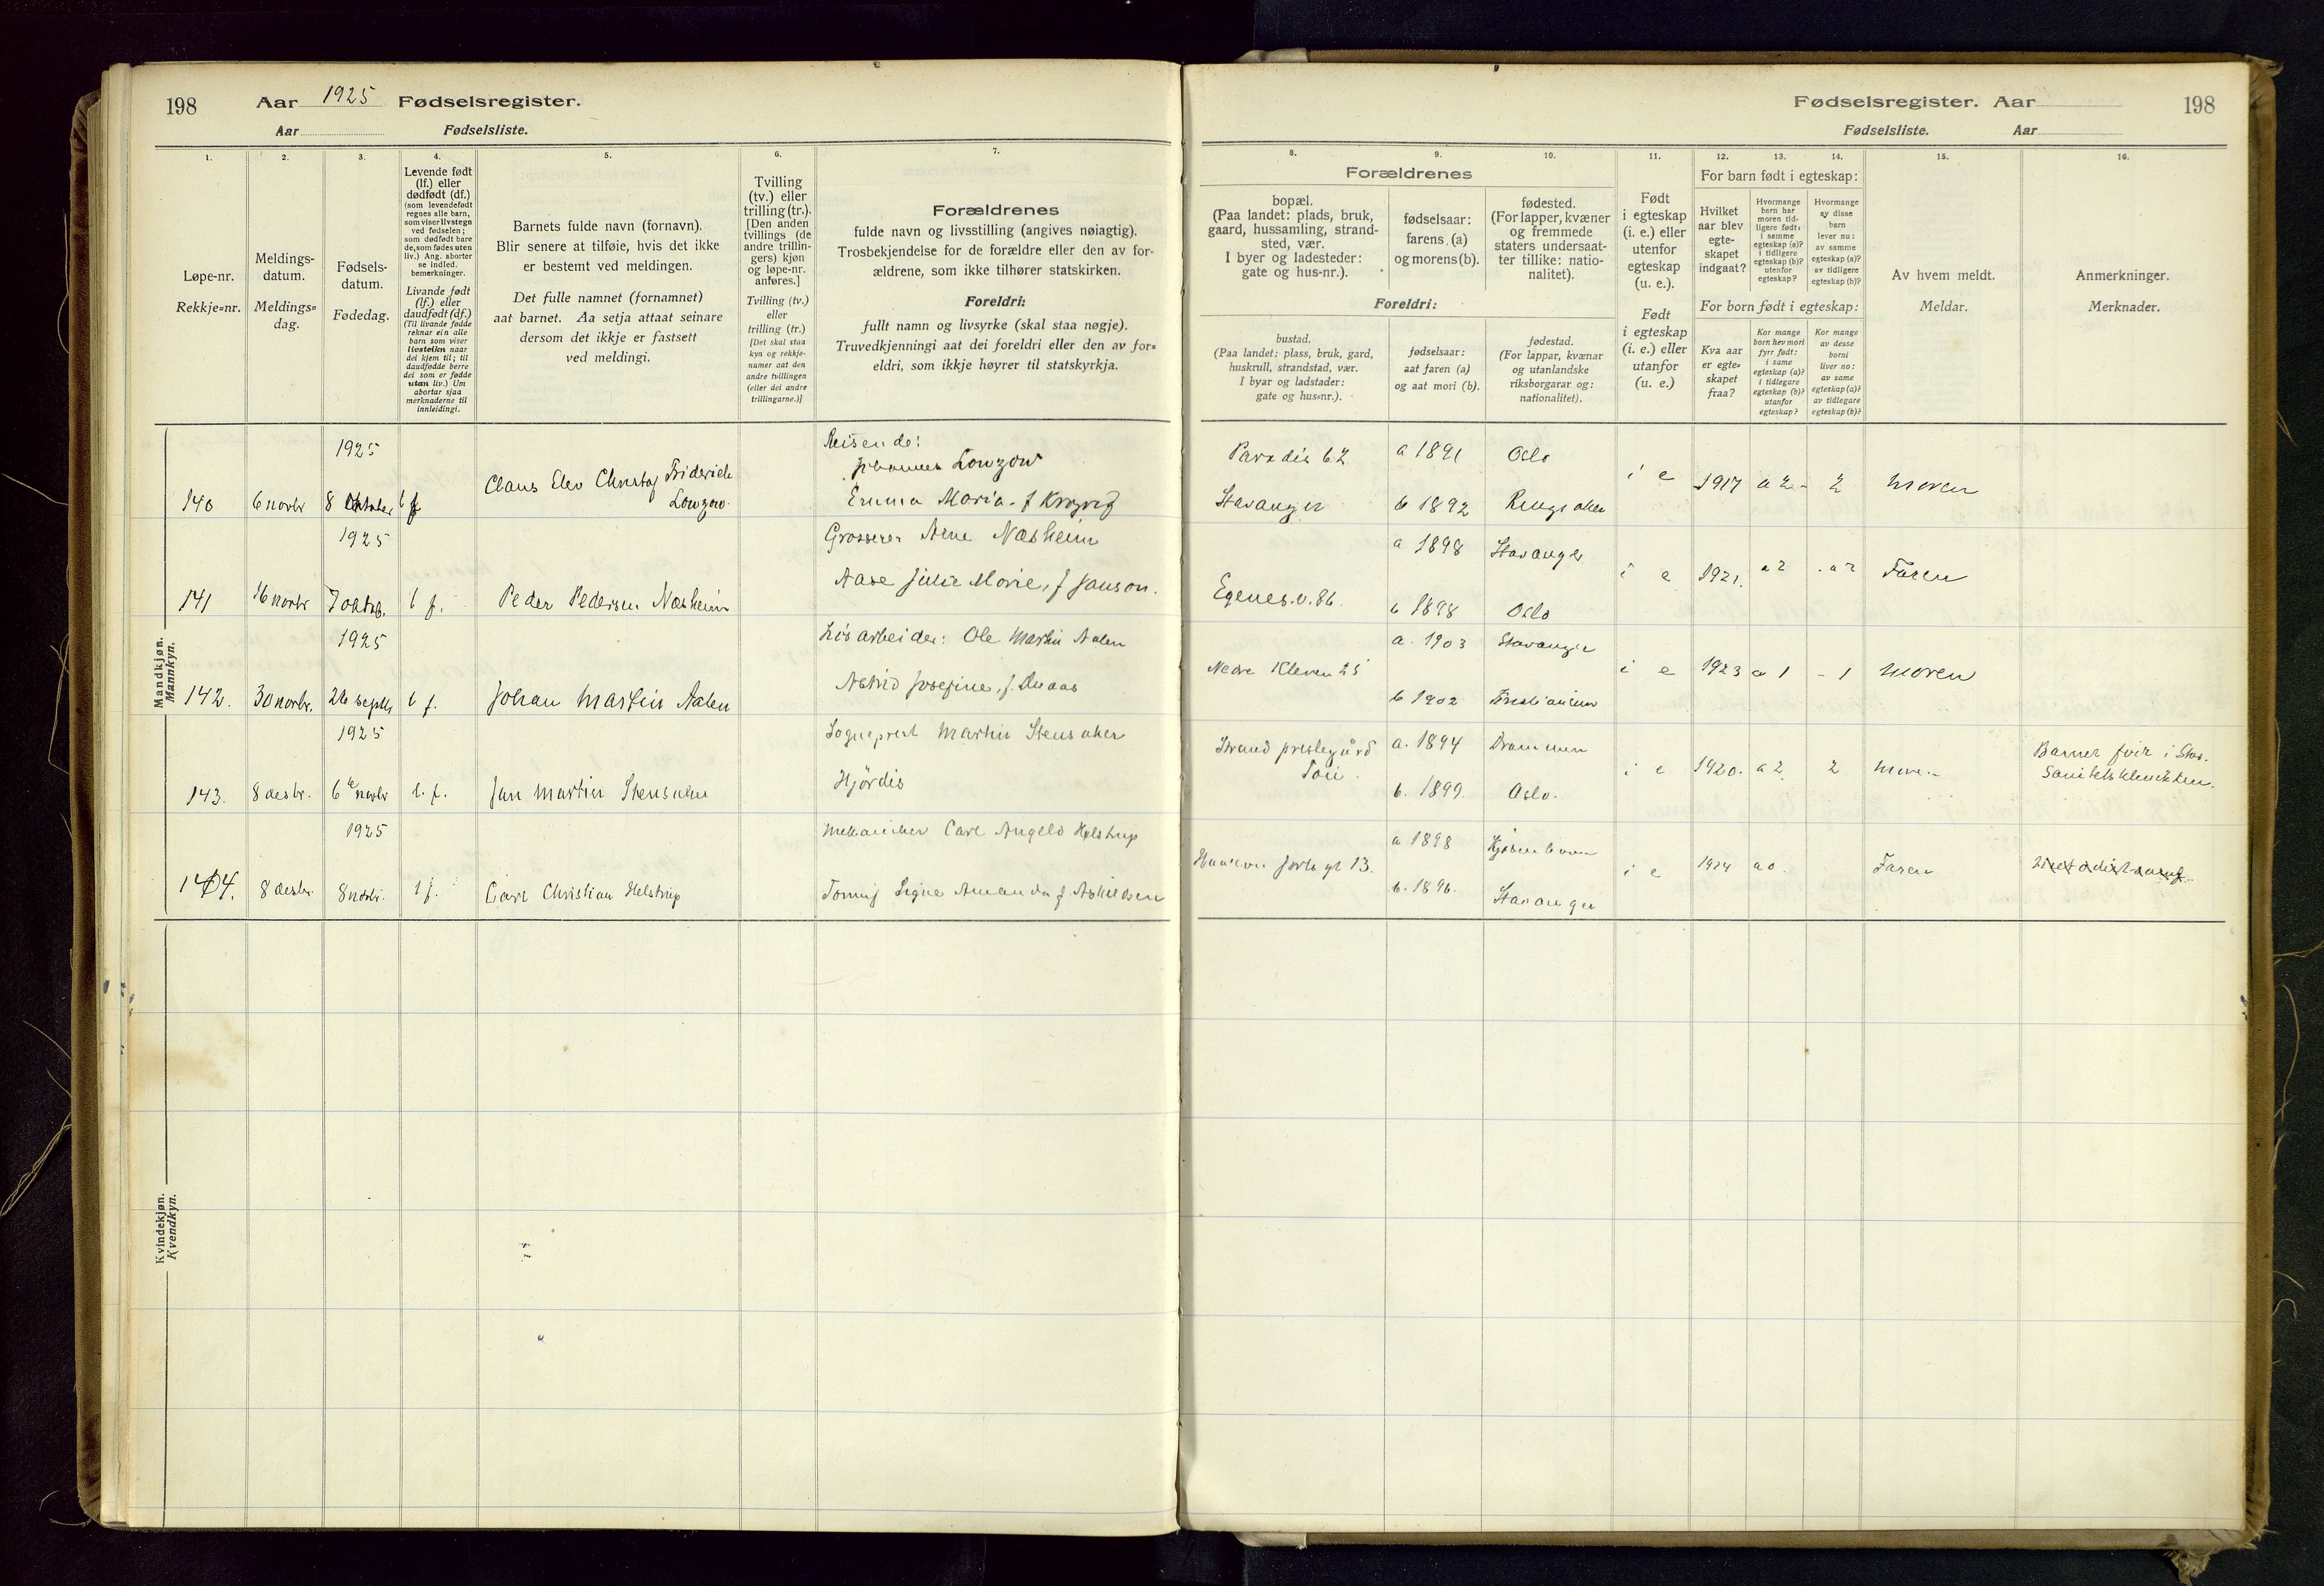 198 Aar 1925 Fødselsregister.
Aar Fødselsliste.
1. 2. 3. 4. 5. 6. 7.
Løpe-nr.
Rekkje=nr.
Meldings-
datum.
Meldings=
dag.
Fødsels-
datum.
Fødedag.
Levende født
(lf.) eller
dødfødt (df.)
(som levendefødt
regnes alle barn,
som viser livstegn
ved fødselen;
som dødfødt bare
de, som fødes uten
liv.) Ang. aborter
se indled.
bemerkninger.
Livande født
(lf.) eller
daudfødt (df.)
(Til livande fødde
reknar ein alle
barn som viser
livsteikn naar
dei kjem til; til
daudfødde berre
dei som er fødde
utan liv.) Um
abortar sjaa
merknaderne til
innleidingi.
Barnets fulde navn (fornavn).
Blir senere at tilføie, hvis det ikke
er bestemt ved meldingen.
Det fulle namnet (fornamnet)
aat barnet. Aa setja attaat seinare
dersom det ikkje er fastsett
ved meldingi.
Tvilling
(tv.) eller
trilling (tr.).
[Den anden
tvillings (de
andre trillin-
gers) kjøn
og løpe-nr.
anføres.]
Tvilling (tv.)
eller
trilling (tr.)
[Det skal staa
kyn og rekkje-
numer aat den
andre tvillingen
(eller dei andre
trillingarne.)]
Forældrenes
fulde navn og livsstilling (angives nøiagtig).
Trosbekjendelse for de forældre eller den av for-
ældrene, som ikke tilhører statskirken.
Foreldri:
fullt namn og livsyrke (skal staa nøgje).
Truvedkjenningi aat dei foreldri eller den av for=
eldri, som ikkje høyrer til statskyrkja.
Mandkjøn.
Mannkyn.
1925
140 6 novbr 8 oktober l f
Claus Elev Christof Friderich
Lowzow
Reisende:
Johannes Lowzow
Emma Maria f
1925
141 16 novbr 7 oktob. l f. Peder Pedersen Næsheim
Grosserer Arne Næsheim
Aase Julie Marie, f Janson.
1925
142. 30 novbr. 26 septbr l f. Johan Martin Aalen
Løsarbeider: Ole Martin Aalen
Astrid Josefine, f.
1925
143. 8 desbr. 6te novbr l. f. Jan Martin Stensaker
Sogneprest Martin Stensaker
Hjørdis
1925
144. 8 desbr. 8 novbr. l f. Carl Christian Helstrup
Mekaniker Carl Angelo Helstrup
Tomny Signe Amanda f Askildsen
Kvindekjøn.
Kvendkyn.
Fødselsregister. Aar 198
Fødselsliste. Aar
8. 9. 10. 11. 12. 13. 14. 15. 16.
Forældrenes
bopæl.
(Paa landet: plads, bruk,
gaard, hussamling, strand-
sted, vær.
I byer og ladesteder:
gate og hus-nr.).
fødselsaar:
farens (a)
og morens (b).
fødested.
(For lapper, kvæner
og fremmede
staters undersaat-
ter tillike: natio-
nalitet).
Foreldri:
bustad.
(Paa landet: plass, bruk, gard,
huskrull, strandstad, vær.
I byar og ladstader:
gate og hus=nr.).
fødselsaar:
aat faren (a)
og aat mori (b).
fødestad.
(For lappar, kvænar
og utanlandske
riksborgarar og:
nationalitet).
Født
i egteskap
(i. e.) eller
utenfor
egteskap
(u. e.).
Født
i egteskap
(i. e.) eller
utanfor
(u. e.)
For barn født i egteskap:
Hvilket
aar blev
egte-
skapet
indgaat?
Hvormange
barn har
moren tid-
ligere født:
i samme
egteskap (a)?
i tidligere
egteskap (b)?
utenfor
egteskap?
Hvormange
av disse
barn
lever nu:
av samme
egteskap (a)?
av tidligere
egteskap (b)?
For born født i egteskap:
Kva aar
er egte=
skapet
fraa?
Kor mange
born hev mori
fyrr født:
i same
egteskap (a)?
i tidlegare
egteskap (b)?
utanfor
egteskap?
Kor mange
av desse
borni
liver no:
av same
egteskap (a)?
av tidlegare
egteskap (b)?
Av hvem meldt.
Meldar.
Anmerkninger.
Merknader.
Paradis 62 a 1891 Oslo
i e 1917 a 2 - 2 moren
Stavanger b 1892 Ringsaker
a 1898 Stavanger
i e 1921. a 2 a 2 Faren
Egenes.v. 86. b 1898 Oslo
a. 1903 Stavanger
Nedre Kleven 25 i e 1923 a 1 - 1 moren
b 1902 Kristiansund
Strand prestegård a. 1894 Drammen
Tau. i e 1920. a 2 2 moren
b. 1899. Oslo.
Barnet født i Stav.
Sanitetsklinikken.
a 1898 Kjøbenhavn
Haakon jarls gt 13. i e 1924 a 0. Faren
b. 1896. Stavanger